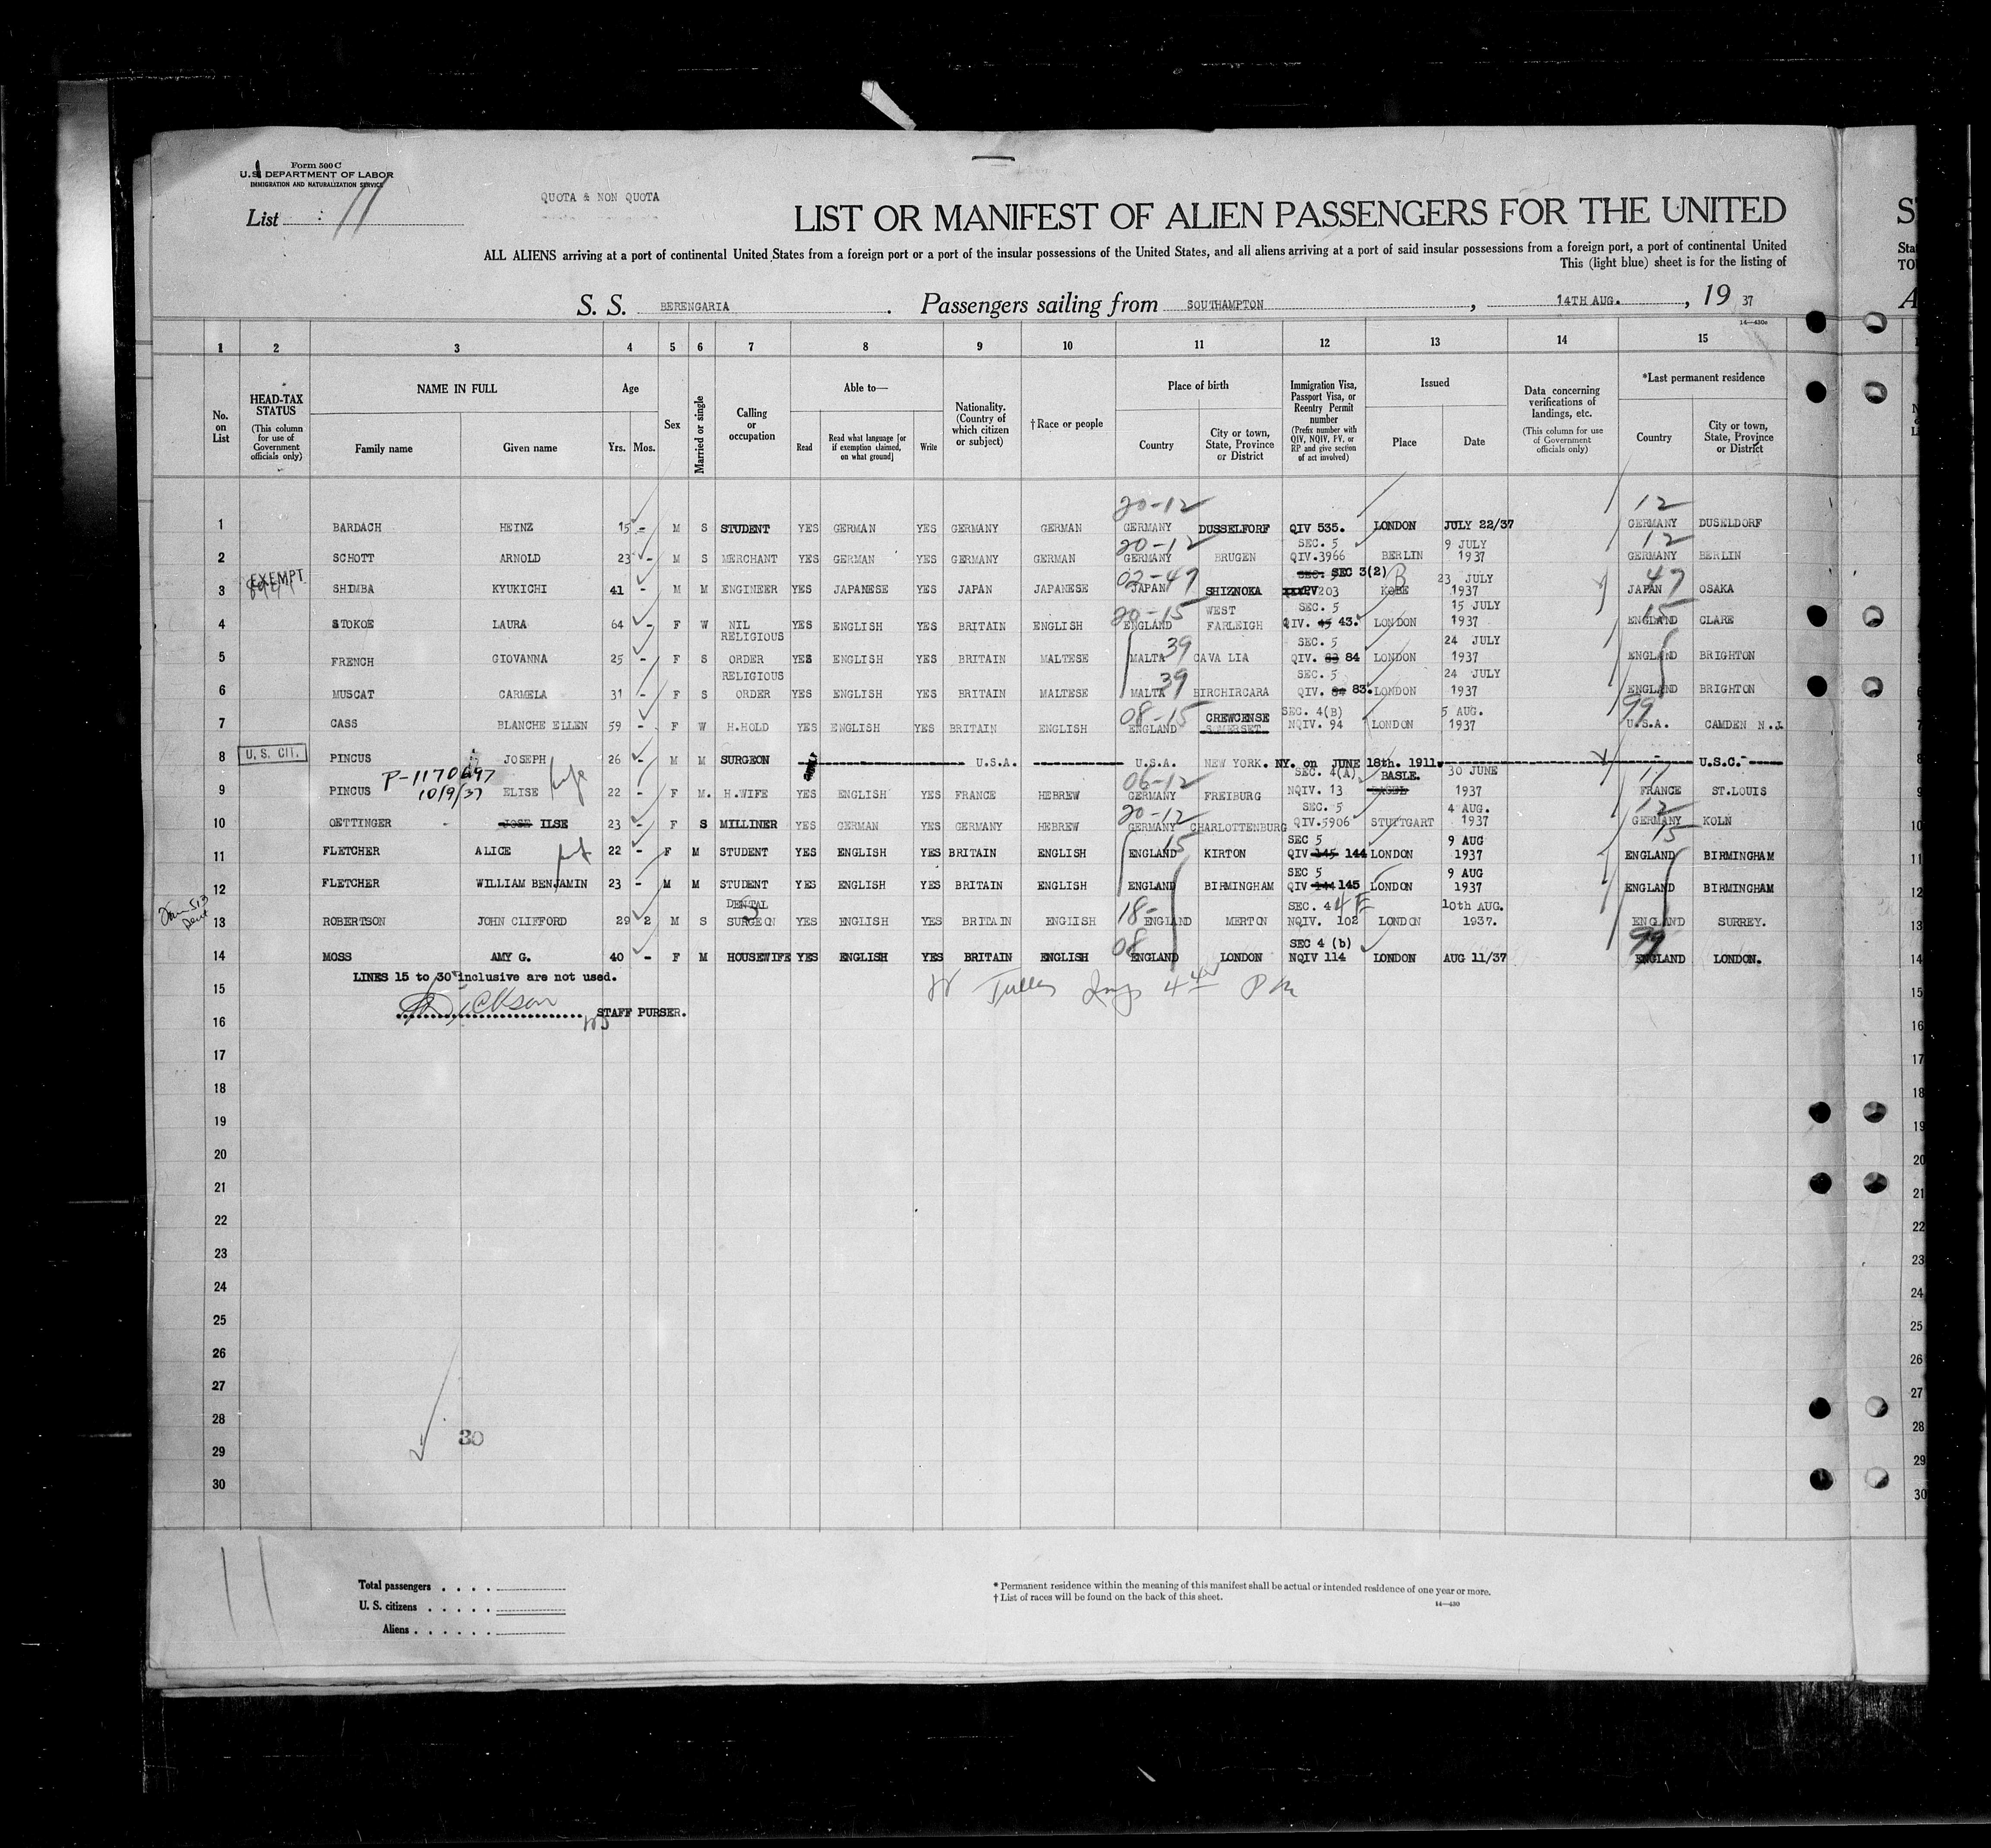 Form 500 C
U.S. DEPARTMENT OF LABOR
IMMIGRATION AND NATURALIZATION SERVICE
List 11
QUOTA & NON QUOTA
LIST OR MANIFEST OF ALIEN PASSENGERS FOR THE UNITED
ALL ALIENS arriving at a port of continental United States from a foreign port or a port of the insular possessions of the United States, and all aliens arriving at a port of said insular possessions from a foreign port, a port of continental United
This (light blue) sheet is for the listing of
S. S. BERENGARIA. Passengers sailing from SOUTHAMPTON, 14TH AUG., 19 37
14—430c
1 2 3 4 5 6 7 8 9 10 11 12 13 14 15
No. on List
HEAD-TAX STATUS (This column for use of Government officials only)
NAME IN FULL Family name Given name
Age Yrs. Mos.
Sex
Married or single
Calling or occupation
Able to— Read Read what language [or if exemption claimed, on what ground] Write
Nationality. (Country of which citizen or subject)
†Race or people
Place of birth Country City or town, State, Province or District
Immigration Visa, Passport Visa, or Reentry Permit number (Prefix number with QIV, NQIV, PV, or RP and give section of act involved)
Issued Place Date
Data concerning verifications of landings, etc. (This column for use of Government officials only)
*Last permanent residence Country City or town, State, Province or District
20-12 12
1 BARDACH HEINZ 15 - M S STUDENT YES GERMAN YES GERMANY GERMAN GERMANY DUSSELFORF QIV 535. LONDON JULY 22/37 GERMANY DUSELDORF
20-12 SEC. 5 9 JULY 12
2 SCHOTT ARNOLD 23 - M S MERCHANT YES GERMAN YES GERMANY GERMAN GERMANY BRUGEN QIV.3966 BERLIN 1937 GERMANY BERLIN
EXEMPT 02-47 SEC 3(2) 23 JULY 47
3 SHIMBA KYUKICHI 41 - M M ENGINEER YES JAPANESE YES JAPAN JAPANESE JAPAN SHIZNOKA PV203 KOBE 1937 JAPAN OSAKA
20-15 WEST SEC. 5 15 JULY 15
4 STOKOE LAURA 64 - F W NIL YES ENGLISH YES BRITAIN ENGLISH ENGLAND FARLEIGH QIV. 45 43. LONDON 1937 ENGLAND CLARE
RELIGIOUS 39 SEC. 5 24 JULY
5 FRENCH GIOVANNA 25 - F S ORDER YES ENGLISH YES BRITAIN MALTESE MALTA CAVA LIA QIV. 83 84 LONDON 1937 ENGLAND BRIGHTON
RELIGIOUS 39 SEC. 5 24 JULY
6 MUSCAT CARMELA 31 - F S ORDER YES ENGLISH YES BRITAIN MALTESE MALTA BIRCHIRCARA QIV. 84 83. LONDON 1937 ENGLAND BRIGHTON
08-15 CREWCENSE SEC. 4(B) 5 AUG. 99
7 CASS BLANCHE ELLEN 59 - F W H.HOLD YES ENGLISH YES BRITAIN ENGLISH ENGLAND SOMERSET. NQIV. 94 LONDON 1937 U.S.A. CAMDEN N.J.
8 U. S. CIT. PINCUS JOSEPH 26 - M M SURGEON U.S.A. U.S.A. NEW YORK. NY. on JUNE 18th. 1911. U.S.C.
P-1170697 06-12 SEC. 4(A) BASLE. 30 JUNE
9 PINCUS 10/9/37 ELISE 22 - F M. H.WIFE YES ENGLISH YES FRANCE HEBREW GERMANY FREIBURG NQIV. 13 BASEL 1937 FRANCE ST.LOUIS
20-12 SEC. 5 4 AUG. 12
10 OETTINGER JOSE ILSE 23 - F S MILLINER YES GERMAN YES GERMANY HEBREW GERMANY CHARLOTTENBURG QIV.5906 STUTTGART 1937 GERMANY KOLN
15 SEC 5 9 AUG 15
11 FLETCHER ALICE 22 - F M STUDENT YES ENGLISH YES BRITAIN ENGLISH ENGLAND KIRTON QIV 145 144 LONDON 1937 ENGLAND BIRMINGHAM
SEC 5 9 AUG
12 FLETCHER WILLIAM BENJAMIN 23 - M M STUDENT YES ENGLISH YES BRITAIN ENGLISH ENGLAND BIRMINGHAM QIV 144 145 LONDON 1937 ENGLAND BIRMINGHAM
DENTAL 18- SEC. 4 4E 10th AUG.
13 ROBERTSON JOHN CLIFFORD 29 2 M S SURGEON YES ENGLISH YES BRITAIN ENGIISH ENGLAND MERTON NQIV. 102 LONDON 1937. ENGLAND SURREY.
08 SEC 4 (b) 99
14 MOSS AMY G. 40 - F M HOUSEWIFE YES ENGLISH YES BRITAIN ENGLISH ENGLAND LONDON NQIV 114 LONDON AUG 11/37 ENGLAND LONDON.
LINES 15 to 30 inclusive are not used.
15
Dickson STAFF PURSER.
16
17
18
19
20
21
22
23
24
25
26
27
28
30
29
30
11
Total passengers
U. S. citizens
Aliens
* Permanent residence within the meaning of this manifest shall be actual or intended residence of one year or more.
† List of races will be found on the back of this sheet.
14—430